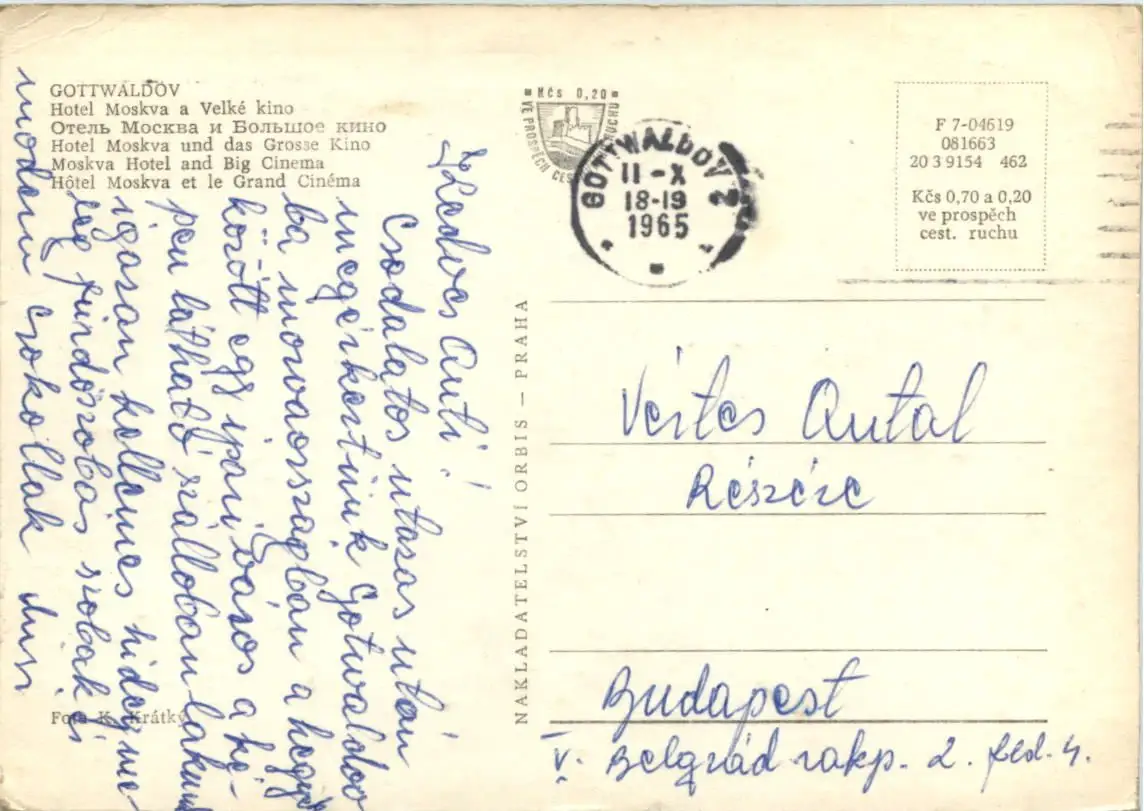 GOTTWALDOV
Hotel Moskva a Velké kino
Отель Москва и Большое кино
Hotel Moskva und das Grosse Kino
Moskva Hotel and Big Cinema
Hôtel Moskva et le Grand Cinéma
Kčs 0,20
VE PROSPĚCH CEST. RUCHU
GOTTWALDOV 2
11-X
18-19
1965
F 7-04619
081663
20 3 9154 462
Kčs 0,70 a 0,20
ve prospěch
cest. ruchu
Kedves Anti!
Csodalatos utasas után
megérkeztünk Gotwaldov
ba morvaországban a hegyek
között egy ipari város a ké-
pen látható szálloban lakunk
igazan kellemes hideg me-
leg fürdőszobas szobák és
modern csokollak
NAKLADATELSTVÍ ORBIS — PRAHA
Foto K. Krátký
Vértes Antal
Részére
Budapest
V. Belgrád rakp. 2. fed. 4.